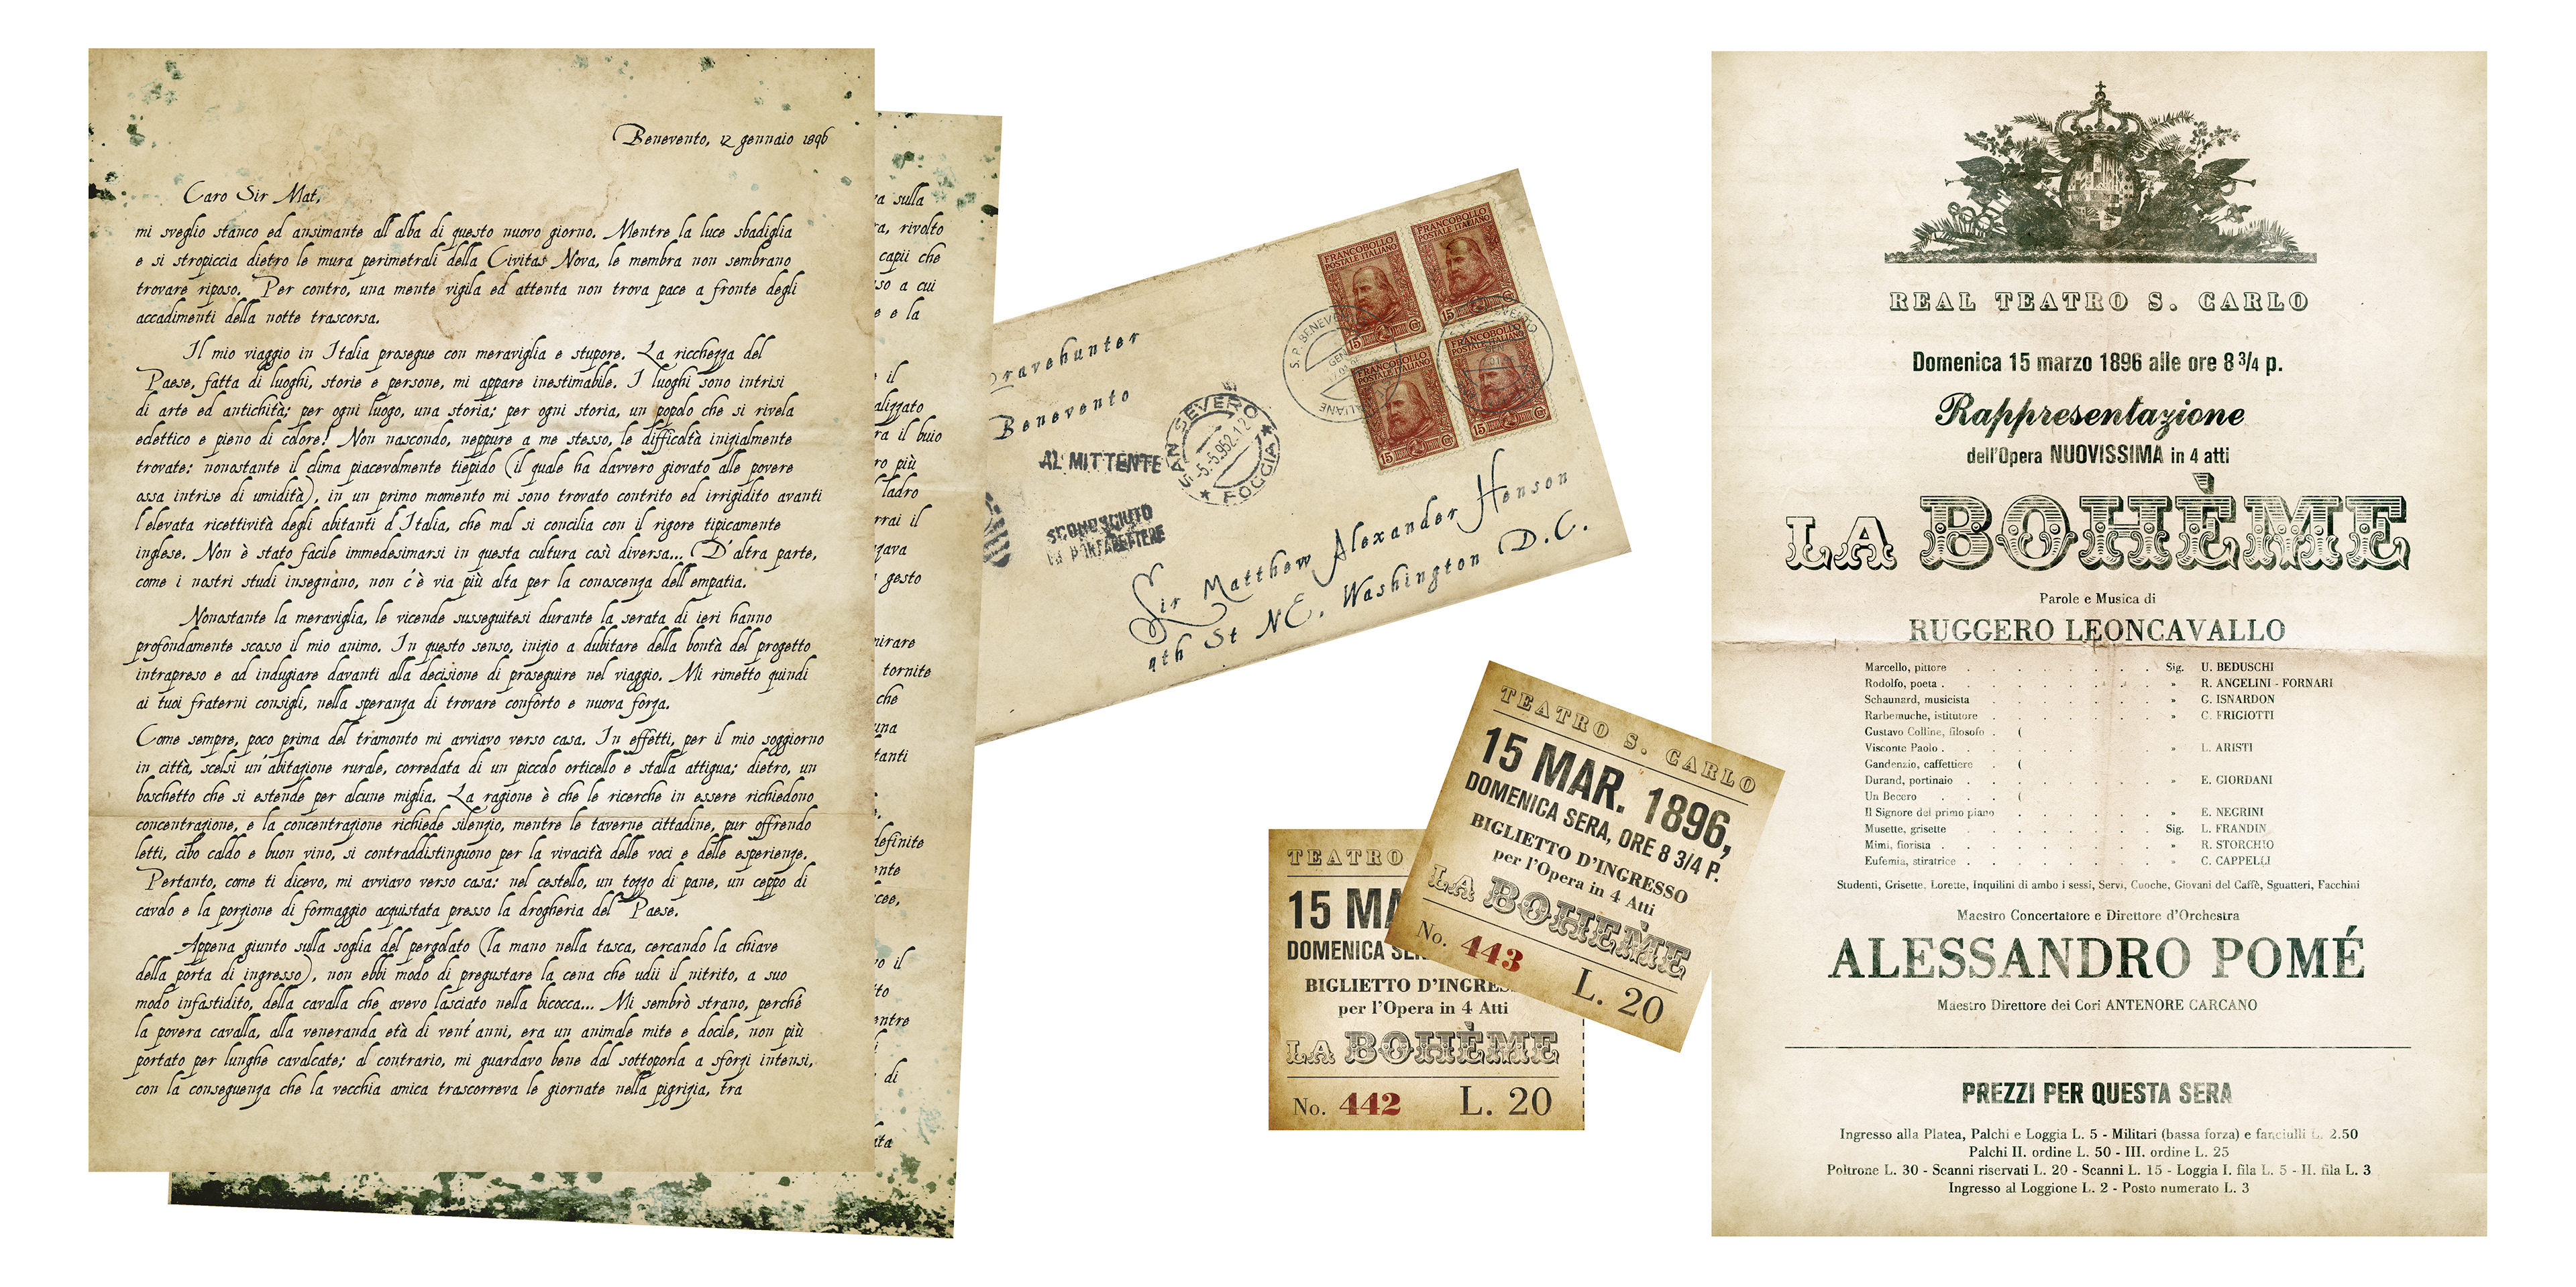 Benevento, 12 gennaio 1896
Caro Sir Mat,
mi sveglio stanco ed ansimante all'alba di questo nuovo giorno. Mentre la luce sbadiglia
e si stropiccia dietro le mura perimetrali della Civitas Nova, le membra non sembrano
trovare riposo. Per contro, una mente vigila ed attenta non trova pace a fronte degli
accadimenti della notte trascorsa.
Il mio viaggio in Italia prosegue con meraviglia e stupore. La ricchezza del
Paese, fatta di luoghi, storie e persone, mi appare inestimabile. I luoghi sono intrisi
di arte ed antichità; per ogni luogo, una storia; per ogni storia, un popolo che si rivela
eclettico e pieno di colore! Non nascondo, neppure a me stesso, le difficoltà inizialmente
trovate: nonostante il clima piacevolmente tiepido (il quale ha davvero giovato alle povere
ossa intrise di umidità), in un primo momento mi sono trovato contrito ed irrigidito avanti
l'elevata ricettività degli abitanti d'Italia, che mal si concilia con il rigore tipicamente
inglese. Non è stato facile immedesimarsi in questa cultura così diversa... D'altra parte,
come i nostri studi insegnano, non c'è via più alta per la conoscenza dell'empatia.
Nonostante la meraviglia, le vicende susseguitesi durante la serata di ieri hanno
profondamente scosso il mio animo. In questo senso, inizio a dubitare della bontà del progetto
intrapreso e ad indugiare davanti alla decisione di proseguire nel viaggio. Mi rimetto quindi
ai tuoi fraterni consigli, nella speranza di trovare conforto e nuova forza.
Come sempre, poco prima del tramonto mi avviavo verso casa. In effetti, per il mio soggiorno
in città, scelsi un'abitazione rurale, corredata di un piccolo orticello e stalla attigua; dietro, un
boschetto che si estende per alcune miglia. La ragione è che le ricerche in essere richiedono
concentrazione, e la concentrazione richiede silenzio, mentre le taverne cittadine, pur offrendo
letti, cibo caldo e buon vino, si contraddistinguono per la vivacità delle voci e delle esperienze.
Pertanto, come ti dicevo, mi avviavo verso casa: nel cestello, un tozzo di pane, un ceppo di
cavolo e la porzione di formaggio acquistata presso la drogheria del Paese.
Appena giunto sulla soglia del pergolato (la mano nella tasca, cercando la chiave
della porta di ingresso), non ebbi modo di pregustare la cena che udii il nitrito, a suo
modo infastidito, della cavalla che avevo lasciato nella bicocca... Mi sembrò strano, perché
la povera cavalla, alla veneranda età di vent'anni, era un animale mite e docile, non più
portato per lunghe cavalcate; al contrario, mi guardavo bene dal sottoporla a sforzi intensi,
con la conseguenza che la vecchia amica trascorreva le giornate nella pigrizia, tra
sulla
rivolto
capii che
a cui
e la
il
il buio
più
ladro
il
gesto
tornite
che
il
di
ravehunter
Benevento
AL MITTENTE
SCONOSCIUTO
PORTALETTERE
SAN SEVERO
5.5.952.12
FOGGIA
FRANCOBOLLO
POSTALE ITALIANO
15 Ct
FRANCOBOLLO
POSTALE ITALIANO
15 Ct
FRANCOBOLLO
POSTALE ITALIANO
15 Ct
FRANCOBOLLO
POSTALE ITALIANO
15 Ct
Sir Matthew Alexander Henson
9th St NE. Washington D.C.
TEATRO
15 MA
DOMENICA SE
BIGLIETTO D'INGRES
per l'Opera in 4 Atti
LA BOHÈME
No. 442 L. 20
TEATRO S. CARLO
15 MAR. 1896,
DOMENICA SERA, ORE 8 3/4 P.
BIGLIETTO D'INGRESSO
per l'Opera in 4 Atti
LA BOHÈME
No. 443 L. 20
REAL TEATRO S. CARLO
Domenica 15 marzo 1896 alle ore 8 3/4 p.
Rappresentazione
dell'Opera NUOVISSIMA in 4 atti
LA BOHÈME
Parole e Musica di
RUGGERO LEONCAVALLO
Marcello, pittore Sig. U. BEDUSCHI
Rodolfo, poeta » R. ANGELINI - FORNARI
Schaunard, musicista » G. ISNARDON
Barbemuche, istitutore » C. FRIGIOTTI
Gustavo Colline, filosofo (
Visconte Paolo » L. ARISTI
Gaudenzio, caffettiere (
Durand, portinaio » E. GIORDANI
Un Becero (
Il Signore del primo piano » E. NEGRINI
Musette, grisette Sig. L. FRANDIN
Mimi, fiorista » R. STORCHIO
Eufemia, stiratrice » C. CAPPELLI
Studenti, Grisette, Lorette, Inquilini di ambo i sessi, Servi, Cuoche, Giovani del Caffè, Sguatteri, Facchini
Maestro Concertatore e Direttore d'Orchestra
ALESSANDRO POMÉ
Maestro Direttore dei Cori ANTENORE CARCANO
PREZZI PER QUESTA SERA
Ingresso alla Platea, Palchi e Loggia L. 5 - Militari (bassa forza) e fanciulli L. 2.50
Palchi II. ordine L. 50 - III. ordine L. 25
Poltrone L. 30 - Scanni riservati L. 20 - Scanni L. 15 - Loggia I. fila L. 5 - II. fila L. 3
Ingresso al Loggione L. 2 - Posto numerato L. 3